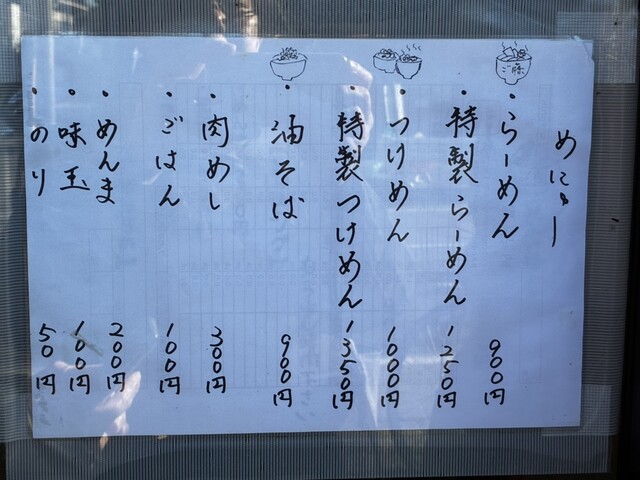 めにゅー
ご豚
・らーめん 900円
・特製らーめん 1250円
・つけめん 1000円
・特製つけめん 1350円
・油そば 900円
・肉めし 300円
・ごはん 100円
・めんま 200円
・味玉 100円
・のり 50円